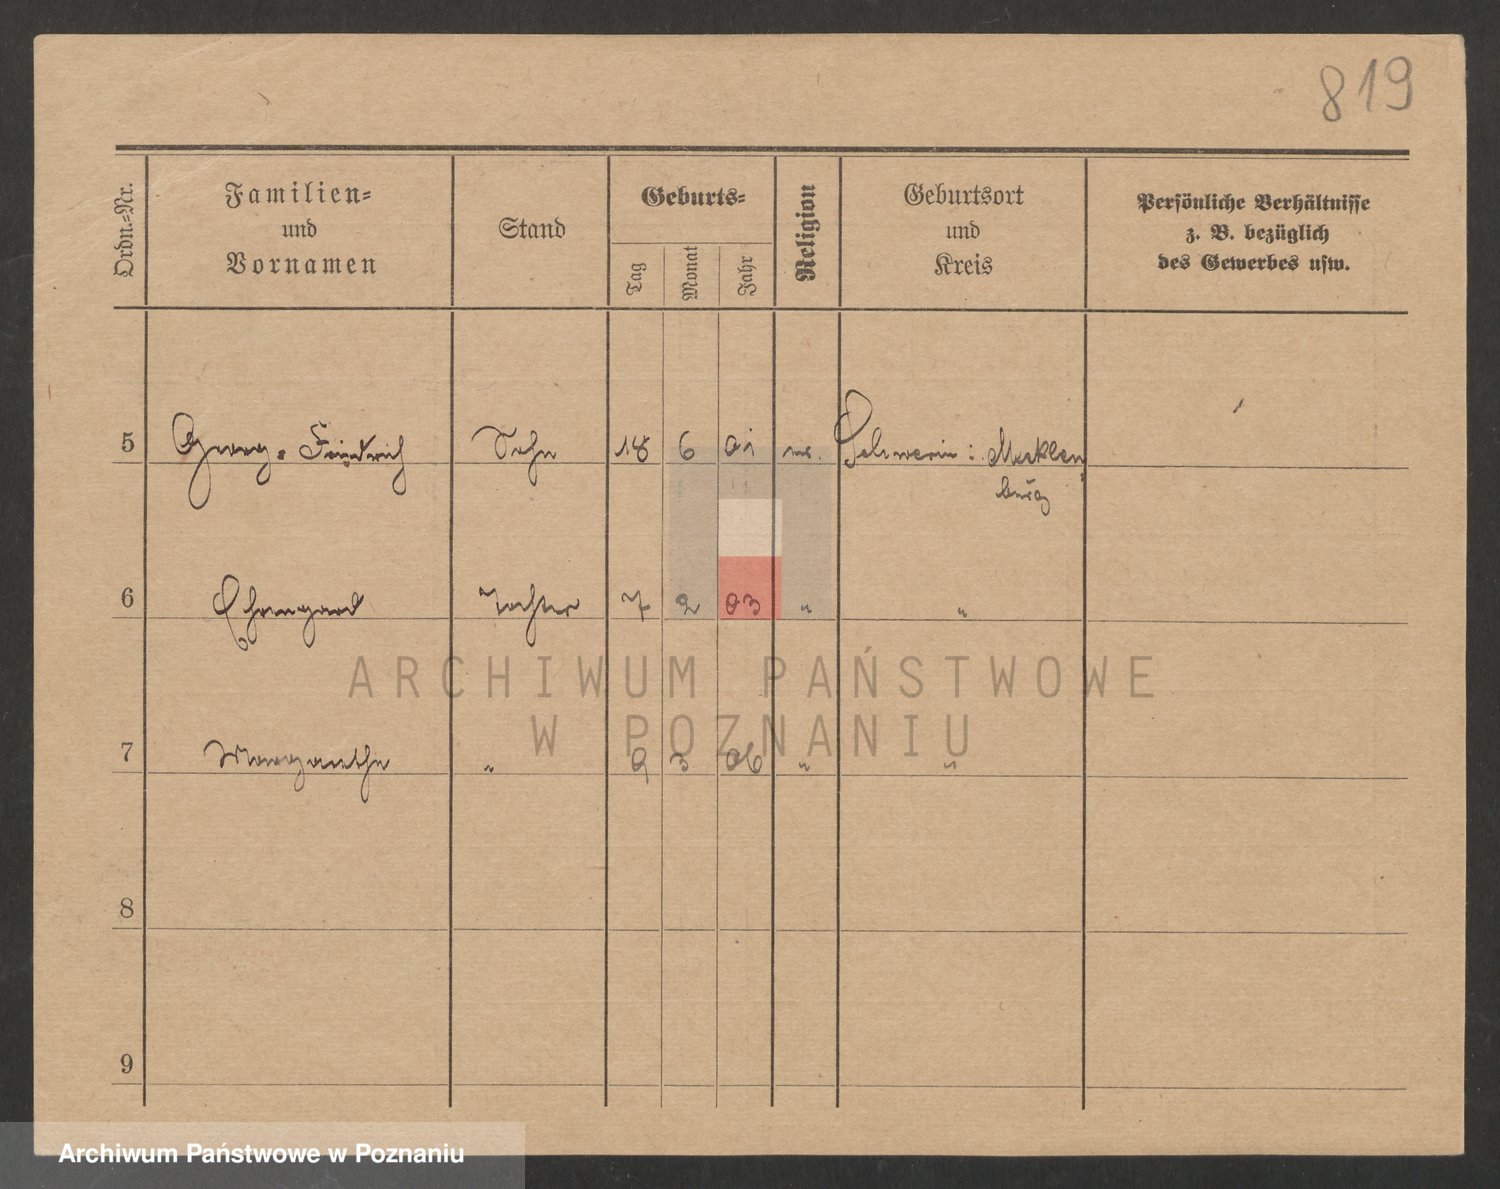 819
Ordn.-Nr.
Familien-
und
Vornamen
Stand
Geburts-
Tag
Monat
Jahr
Religion
Geburtsort
und
Kreis
Persönliche Verhältnisse
z. B. bezüglich
des Gewerbes usw.
5 Georg-Friedrich Sohn 18 6 01 ev. Schwerin i. Mecklen
burg
6 Ehrengard Tochter 7 2 03 " "
ARCHIWUM PAŃSTWOWE
W POZNANIU
7 Margarethe " 9 3 06 " "
8
9
Archiwum Państwowe w Poznaniu